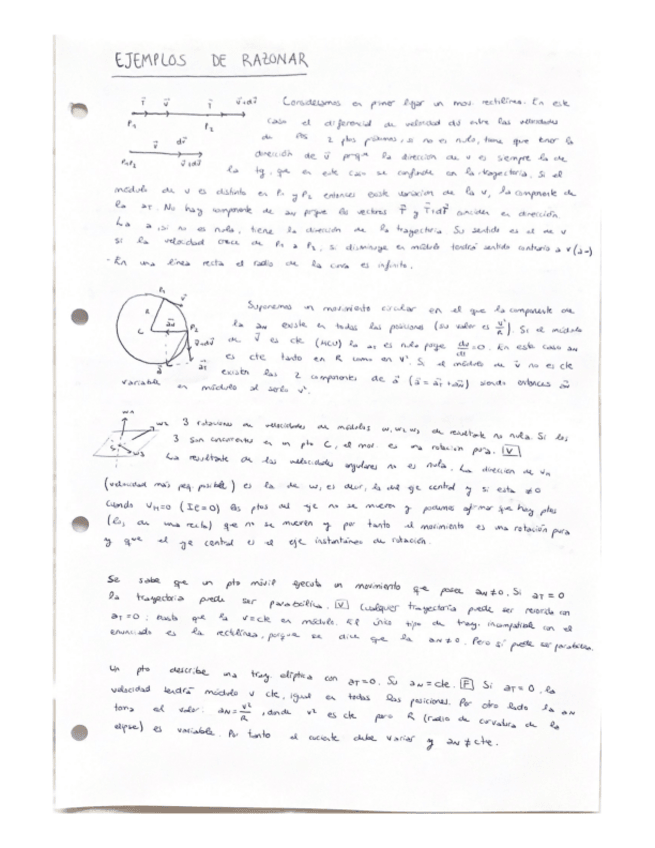 EJEMPLOS DE RAZONAR
Consideramos en primer lugar un mov. rectilíneo. En este
caso el diferencial de velocidad dv entre las velocidades
de los 2 ptos próximos, si no es nulo, tiene que tener la
dirección de v porque la dirección de v es siempre la de
la tg, que en este caso se confunde con la trayectoria. Si el
módulo de v es distinto en P1 y P2 entonces existe variación de la v, la componente de
la aT. No hay componente de aN porque los vectores T y T+dT coinciden en dirección
La a, si no es nula, tiene la dirección de la trayectoria. Su sentido es el de v
si la velocidad crece de P1 a P2, si disminuye en módulo tendrá sentido contrario a v (a-)
- En una línea recta el radio de la curva es infinito.
Suponemos un movimiento circular en el que la componente de
la aN existe en todas las posiciones (su valor es v²/R). Si el módulo
de v es cte (MCU) la aT es nula porque dv/dt = 0. En este caso aN
es cte tanto en R como en v². Si el módulo de v no es cte
existen las 2 componentes de a (a = aT + aN) siendo entonces aN
variable en módulo al serlo v².
3 rotaciones de velocidades de módulos w1 w2 w3 de resultante no nula. Si los
3 son concurrentes en un pto C, el mov. es una rotación pura. V
La resultante de las velocidades angulares no es nula. La dirección de vn
(velocidad más peq. posible) es la de w, es decir, la del eje central y si esta ≠0
Cuando VH=0 (IE=0) los ptos del eje no se mueven y podemos afirmar que hay ptos
(los de una recta) que no se mueven y por tanto el movimiento es una rotación pura
y que el eje central es el eje instantáneo de rotación.
Se sabe que un pto móvil ejecuta un movimiento que posee aN≠0. Si aT = 0
la trayectoria puede ser parabólica. V Cualquier trayectoria puede ser recorrida con
aT=0; basta que la v=cte en módulo. El único tipo de tray. incompatible con el
enunciado es la rectilínea, porque se dice que la aN≠0. Pero sí puede ser parabólica.
Un pto describe una tray. elíptica con aT=0. Su aN=cte. F Si aT = 0, la
velocidad tendrá módulo v cte, igual en todas las posiciones. Por otro lado la aN
toma el valor: aN = v²/R, donde v² es cte pero R (radio de curvatura de la
elipse) es variable. Por tanto el cociente debe variar y aN ≠ cte.